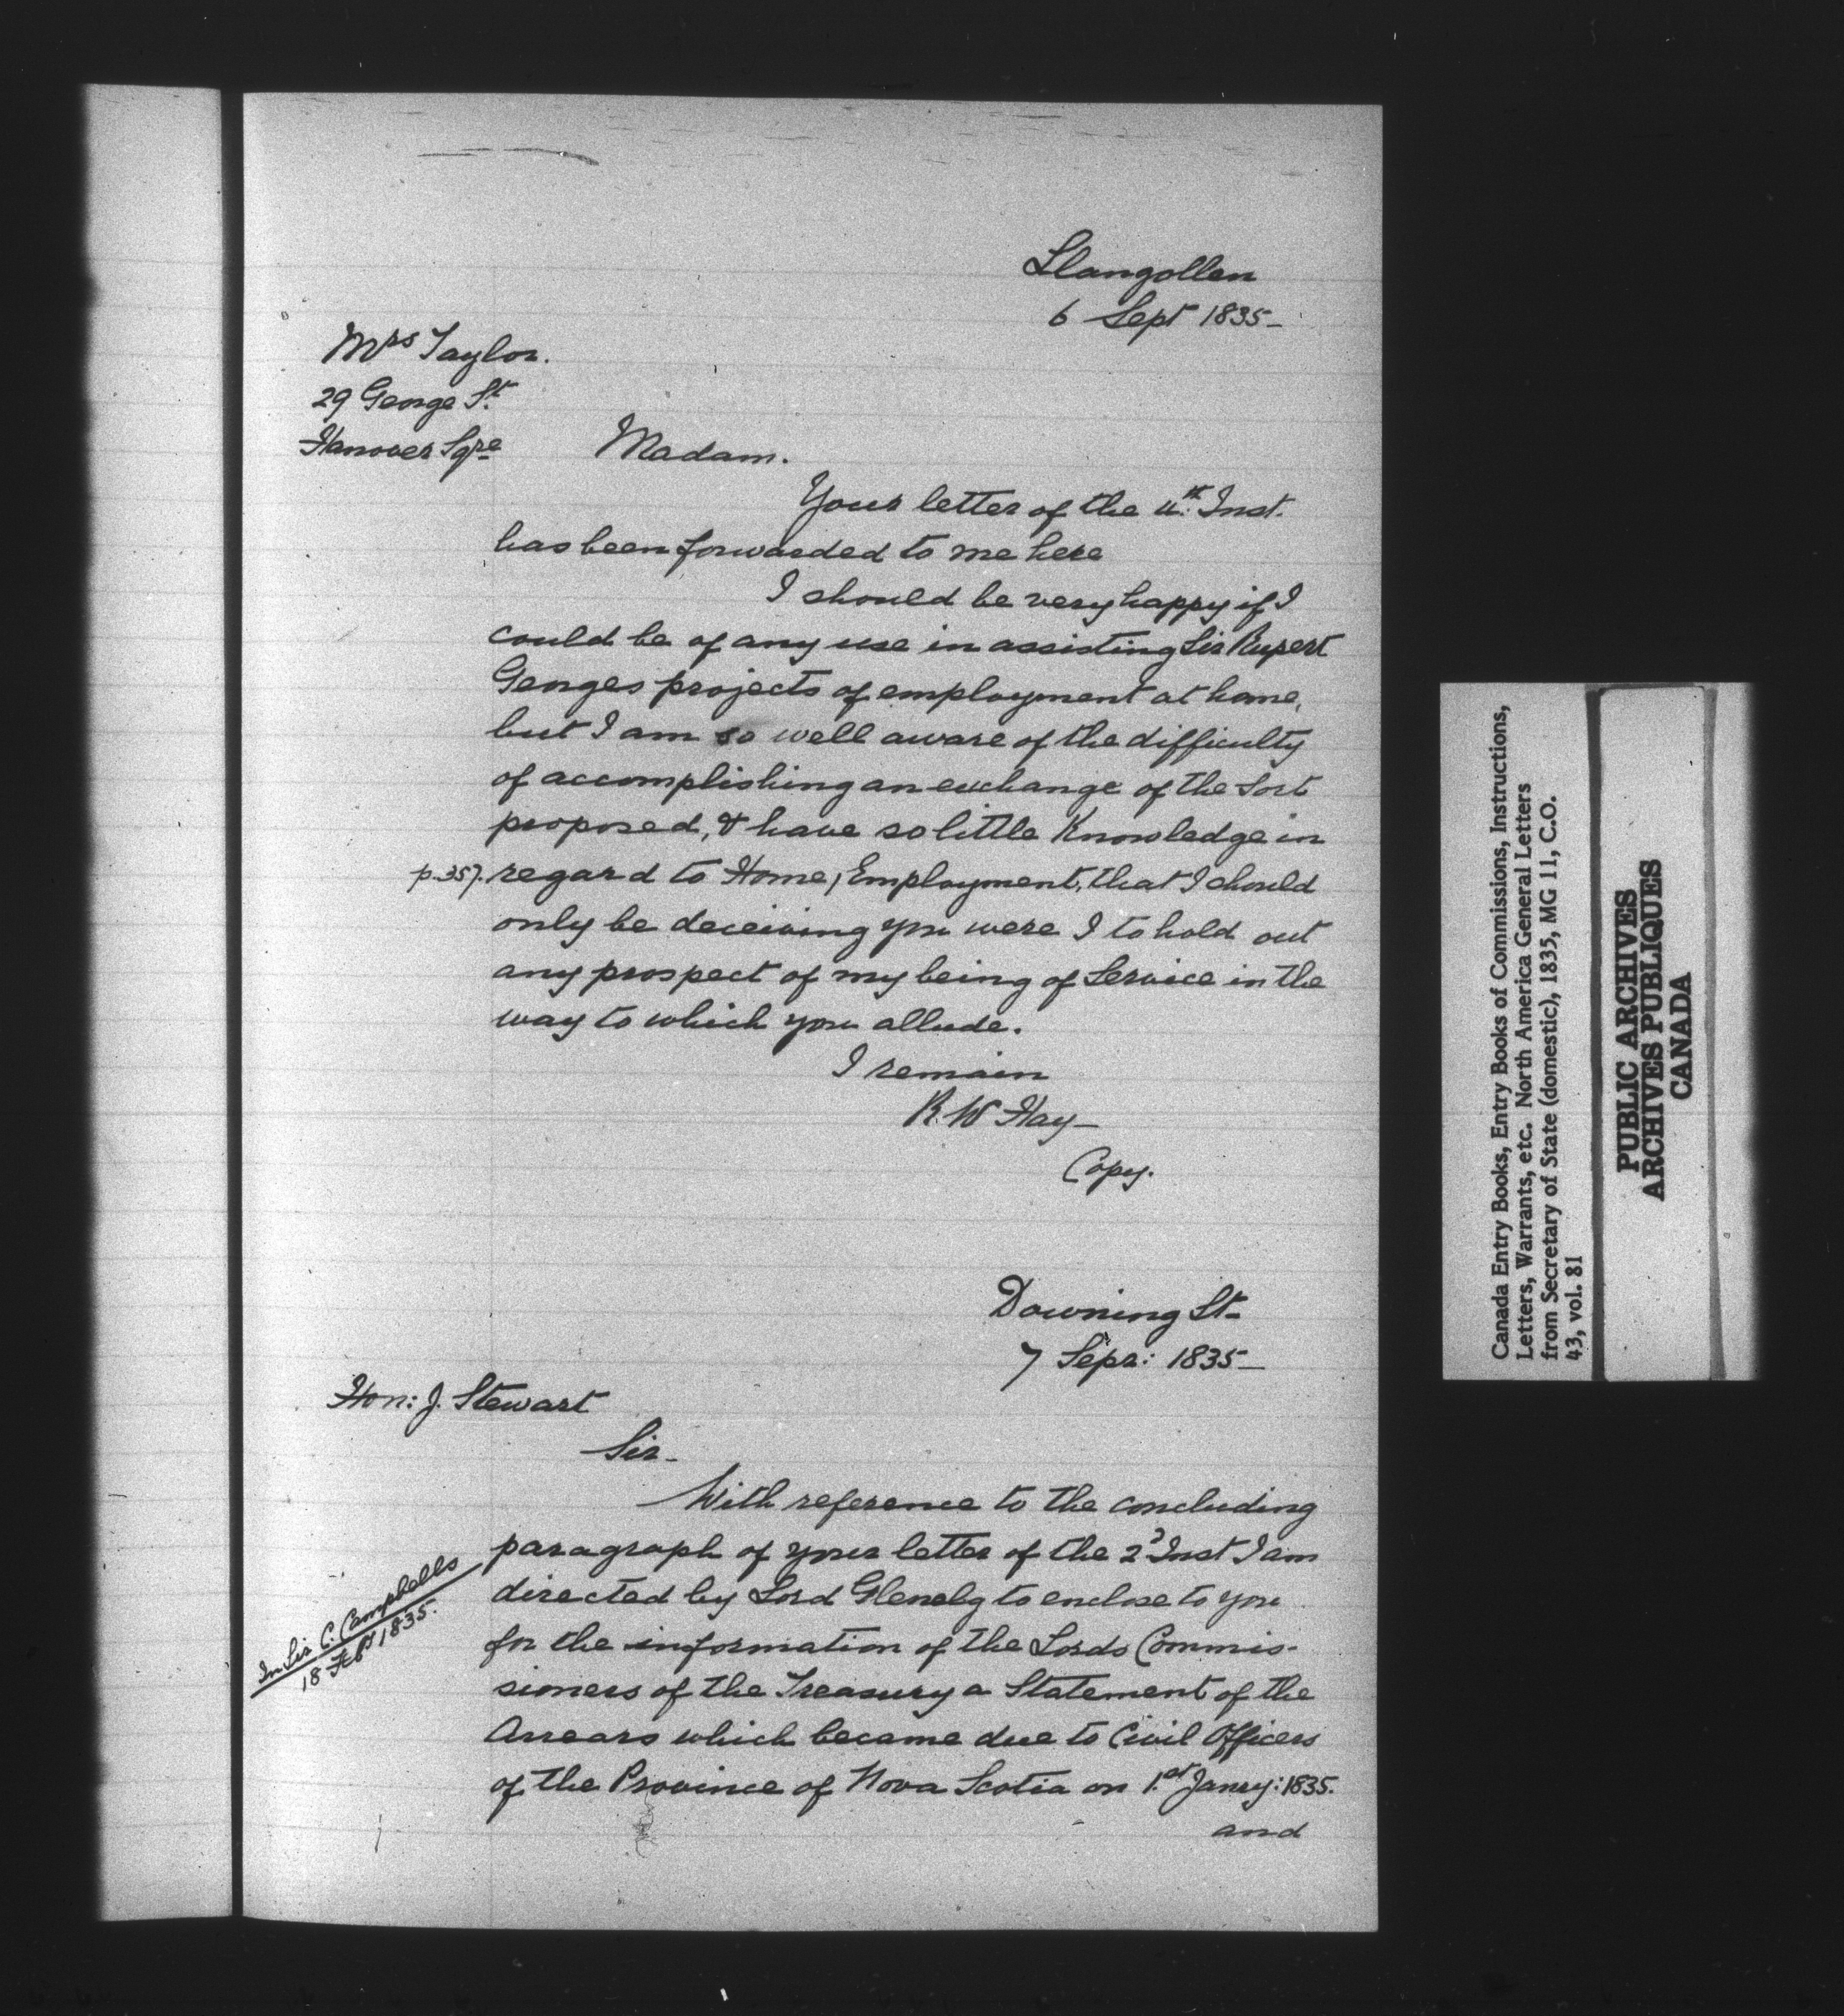 Llangollen
6 Sept 1835-
Mrs Taylor.
29 George St.
Hanover Sqre
Madam.
Your letter of the 4th. Inst.
has been forwarded to me here
I should be very happy if I
could be of any use in assisting Sir Rupert
Georges projects of employment at home,
but I am so well aware of the difficulty
of accomplishing an exchange of the sort
proposed, & have so little Knowledge in
p.357. regard to Home, Employment, that I should
only be deceiving you were I to hold out
any prospect of my being of Service in the
way to which you allude.
I remain
R. W Hay-
Copy.
Downing St-
7 Sepr: 1835-
Hon: J. Stewart
Sir-
With reference to the concluding
paragraph of your letter of the 2d Inst I am
directed by Lord Glenelg to enclose to you
In Sir C. Campbells
18 Feby 1835.
for the information of the Lords Commis-
sioners of the Treasury a Statement of the
Arrears which became due to Civil Officers
of the Province of Nova Scotia on 1.st Janry: 1835.
and
Canada Entry Books, Entry Books of Commissions, Instructions,
Letters, Warrants, etc. North America General Letters
from Secretary of State (domestic), 1835, MG 11, C.O.
43, vol. 81
PUBLIC ARCHIVES
ARCHIVES PUBLIQUES
CANADA